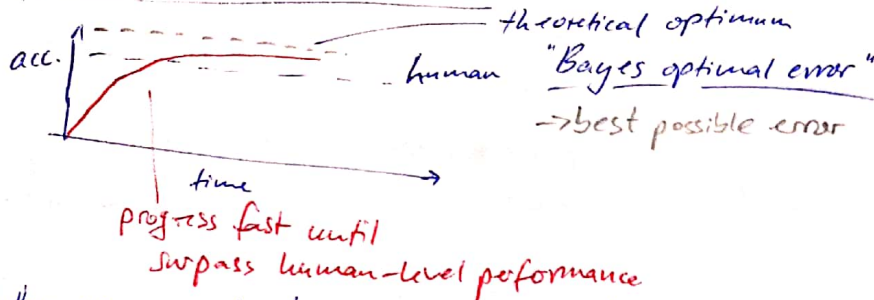 theoretical optimum
acc.
human
"Bayes optimal error"
→best possible error
time
progress fast until
surpass human-level performance